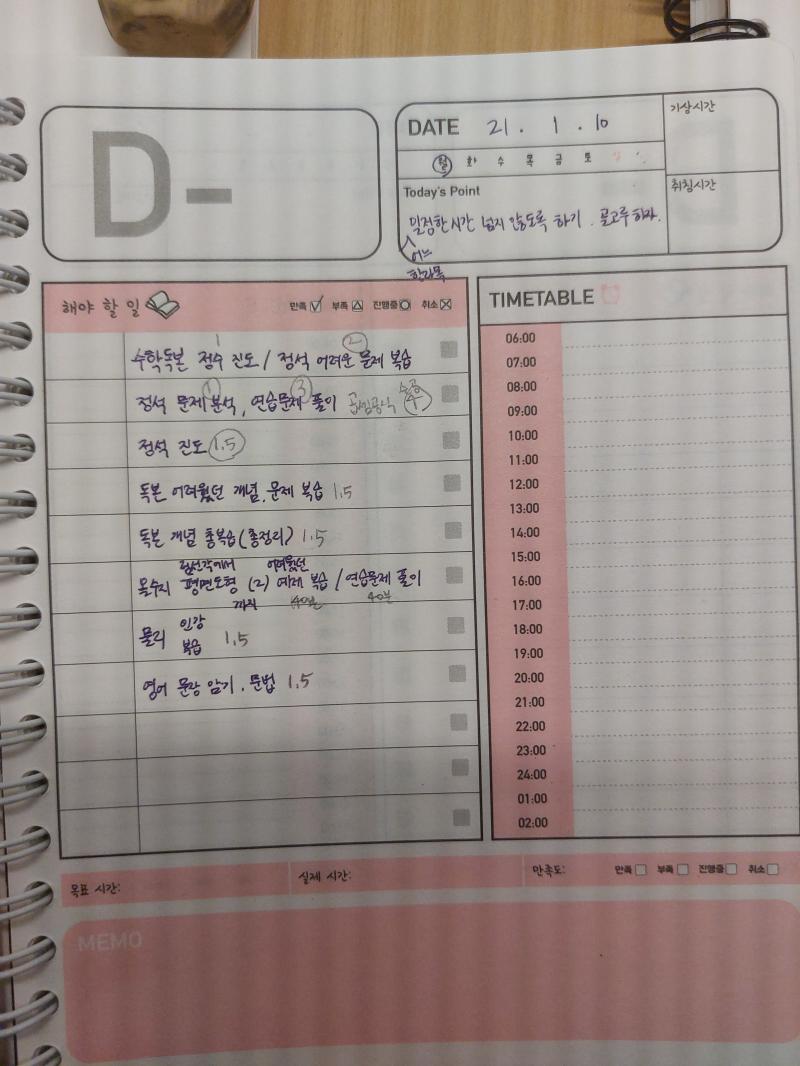 D-
DATE 21. 1. 10
월 화 수 목 금 토 일
기상시간
취침시간
Today's Point
일정한 시간 넘지 않도록 하기. 골고루 하자.
어느
한과목
해야 할 일
만족 부족 진행중 취소
1 2
수학독본 정수 진도 / 정석 어려운 문제 복습
1 3
정석 문제 분석, 연습문제 풀이 4
정석 진도 1.5
독본 어려웠던 개념, 문제 복습 1.5
독본 개념 총복습(총정리) 1.5
어려웠던
올수리 평면도형 (2) 예제 복습 / 연습문제 풀이
까지 40분 40분
물리 인강 복습 1.5
영어 문장 암기, 문법 1.5
TIMETABLE
06:00
07:00
08:00
09:00
10:00
11:00
12:00
13:00
14:00
15:00
16:00
17:00
18:00
19:00
20:00
21:00
22:00
23:00
24:00
01:00
02:00
목표 시간:
실제 시간:
만족도: 만족 부족 진행중 취소
MEMO